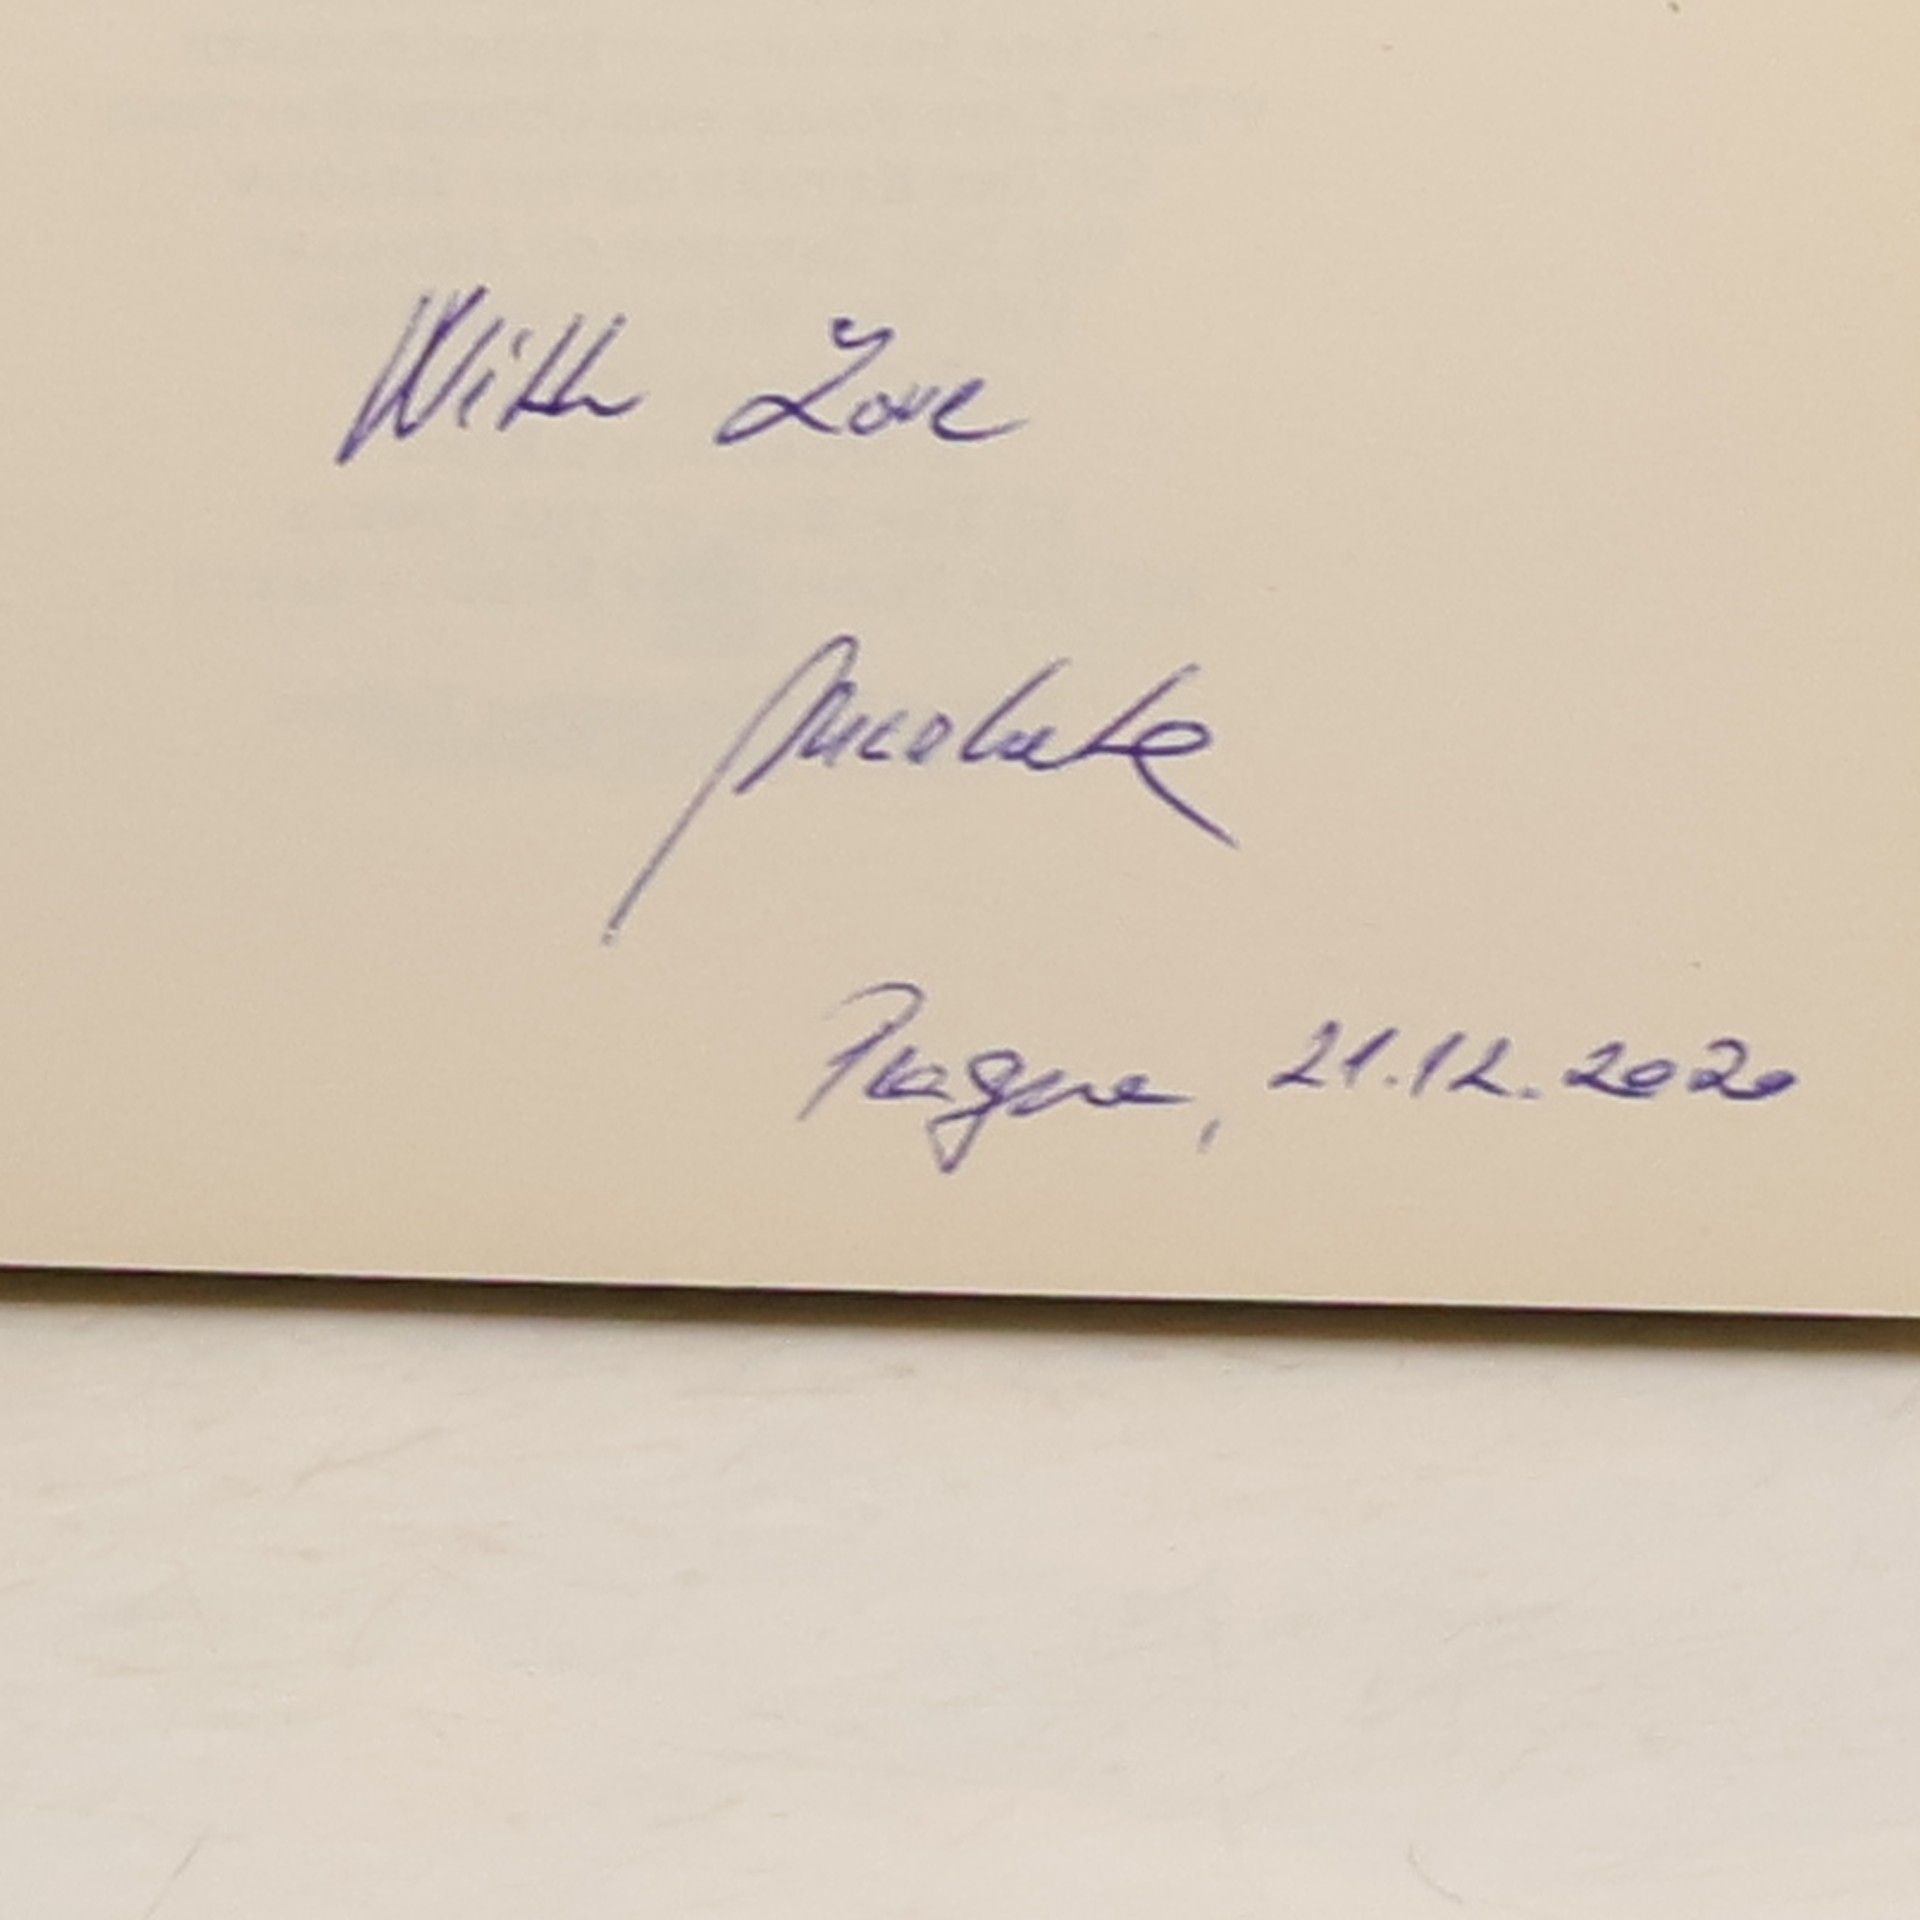 With Love
Prague, 21.12.2020